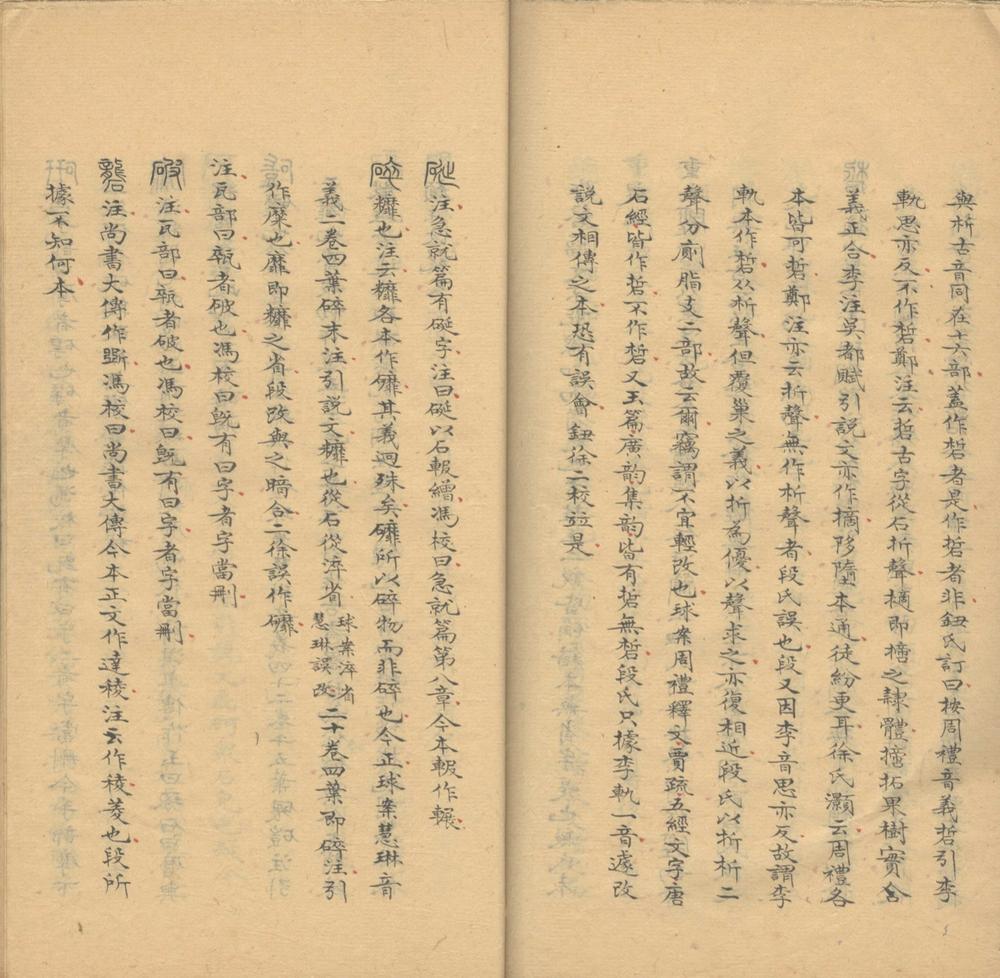 與析古音同在十六部蓋作硩者是作哲者非鈕氏訂曰按周禮音義哲引李
軌思亦反不作硩鄭注云哲古字從石折聲樀即𢷎之隸體𢷎拓果樹實合
義正合李注吳都賦引說文亦作摘陊墮本通徒紛更耳徐氏灝云周禮各
本皆可哲鄭注亦云折聲無作析聲者段氏誤也段又因李音思亦反故謂李
軌本作硩从析聲但覆巢之義以折為優以聲求之亦復相近段氏以折析二
聲分廁脂支二部故云爾竊謂不宜輕改也球案周禮釋文賈疏五經文字唐
石經皆作哲不作硩又玉篇廣韵集韵皆有哲無硩段氏只據李軌一音遽改
說文相傳之本恐有誤會鈕徐二校竝是
硟注急就篇有硟字注曰硟以石輾繒馮校曰急就篇第八章今本輾作輾
碎䃺也注云䃺各本作䃺其義迥殊矣䃺所以碎物而非碎也今正球案慧琳音
義二卷四葉碎末注引說文䃺也從石從淬省球案淬省慧琳誤改二十卷四葉即碎注引
作糜也靡即䊳之省段改與之暗合二徐誤作䃺
注瓦部曰㼽者破也馮校曰既有曰字者字當刪
破注瓦部曰㼽者破也馮校曰既有曰字者字當刪
礱注尚書大傳作斲馮校曰尚書大傳今本正文作達稜注云作稜菱也段所
據不知何本